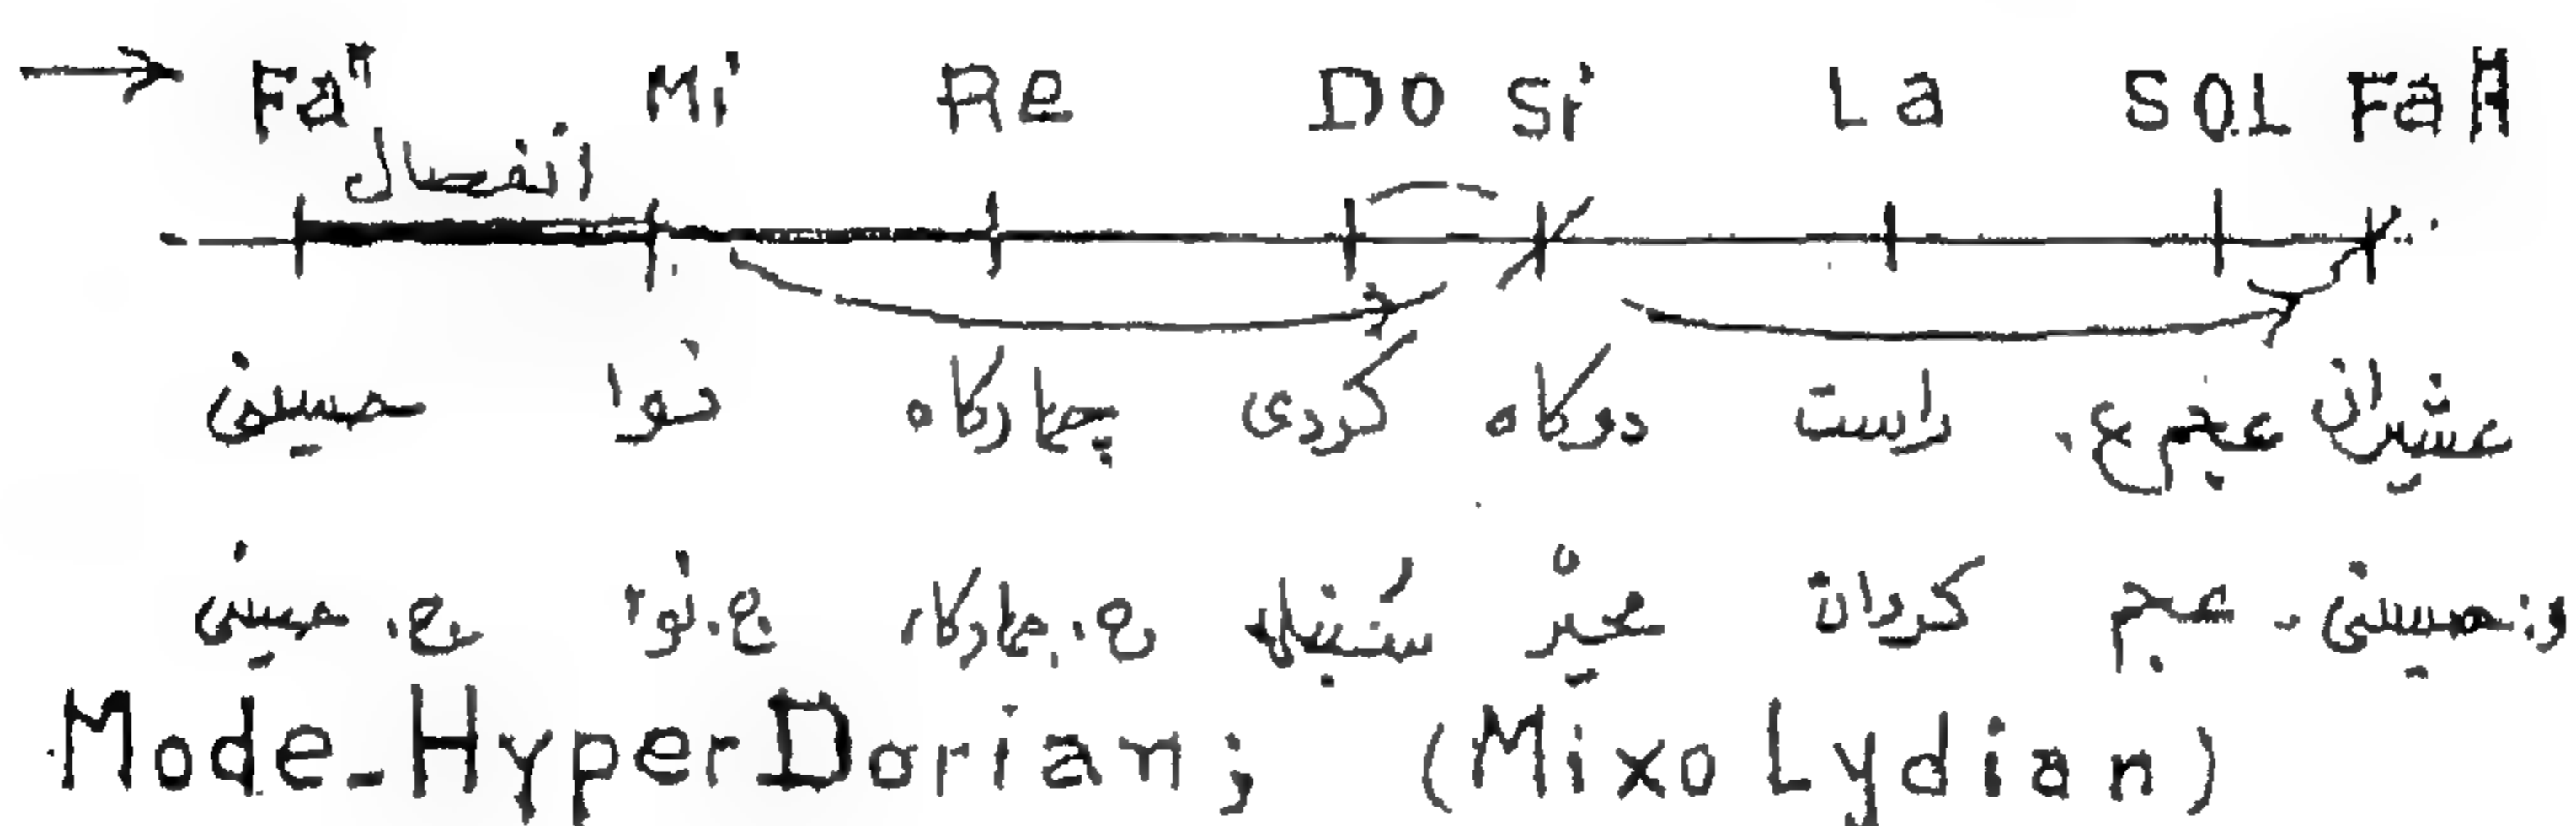 → Fa# Mi Re Do Si La SOL Fa#
انفصال
حسيني نوا چهارگاه كردى دوگاه راست عجم ع. عشيران
ج. حسيني ج. نوا ج. چهارگاه سُنبله محيّر كردان عجم - حسيني
Mode-HyperDorian; (MixoLydian)